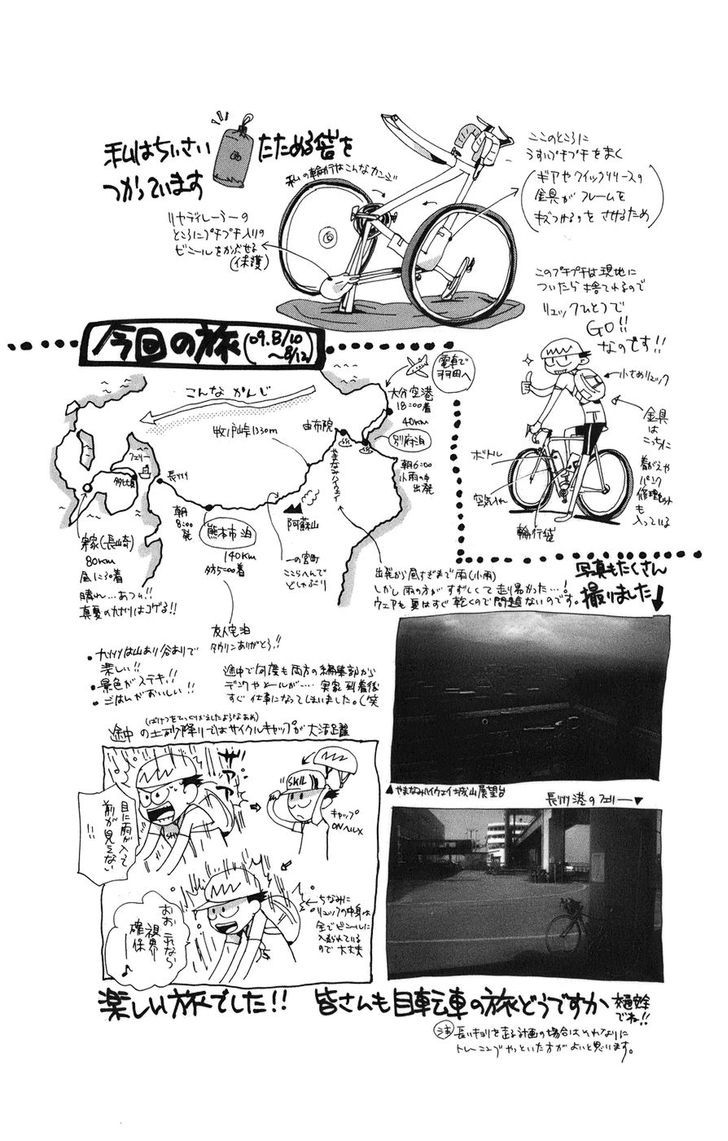 私はちいさい
たためる袋を
つかっています
私の輪行はこんなカンジ
リヤディレーラーの
ところにプチプチ入りの
ビニールをかぶせる
(保護)
ここのところに
うすいプチプチをまく
(ギアやクイックリリースの
金具がフレームを
キズつけるのをさせるため)
このプチプチは現地に
ついたら捨てれるので
リュックひとつで
GO!!
なのです!!
小さめリュック
金具は
こっちに
着がえや
パンク
修理セットも
入っている
ボトル
空気いれ
輪行袋
今回の旅('09.8/10
～8/12)
こんなかんじ
電車で
羽田へ
大分空港
18:00着
40km
別府泊
朝6:00
小雨の中
出発
由布院
やまなみハイウェイ
牧ノ戸峠1330m
阿蘇山
一の宮町
ここらへんで
どしゃぶり
熊本市泊
140km
夕方5:00着
友人宅泊
タウリンありがとう!!
長洲
朝
8:00
発
フェリー
多比良
実家(長崎)
80km
昼に30着
晴れ…あつい!!
真夏の九州はコゲる!!
出発から昼すぎまで雨(小雨)
しかし雨の方がすずしくて走り易かった…!
ウェアも夏はすぐ乾くので問題ないのです。
写真もたくさん
撮りました
・九州は山あり谷ありで
楽しい!!
・景色がステキ!!
・ごはんがおいしい!!
途中で何度も両方の編集部から
デンワやメールが… 実家到着後
すぐ仕事になってしまいました。(笑
(ばけつをひっくりかえしたような雨)
途中の土砂降りではサイクルキャップが大活躍
ザアアア
目に雨が入って
前が見えない
!!
SKIL
キャップ
ONヘルメ
おおこれなら
視界
確保♪
ちなみに
リュックの中身は
全てビニールに
入れられている
ので大丈夫
▲やまなみハイウェイ 城山展望台
長洲港のフェリー▼
楽しい旅でした!! 皆さんも自転車の旅どうですか 交通安全
でね!!
注 長いキョリを走る計画の場合はそれなりに
トレーニングやっといた方がよいと思います。